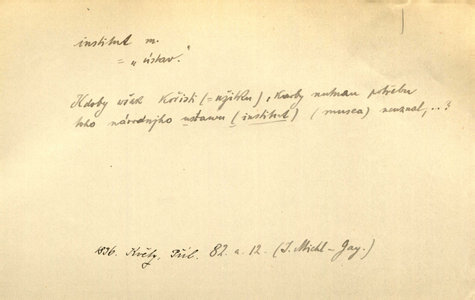 institut m.
= „ústav."
Kdoby však kořisti (= užitku), kdoby nutnau potřebu
toho národnjho ustawu (institut) (musea) neuznal,..?
1836. Květy. Příl. 82. a. 12. (J. Michl – Gay.)